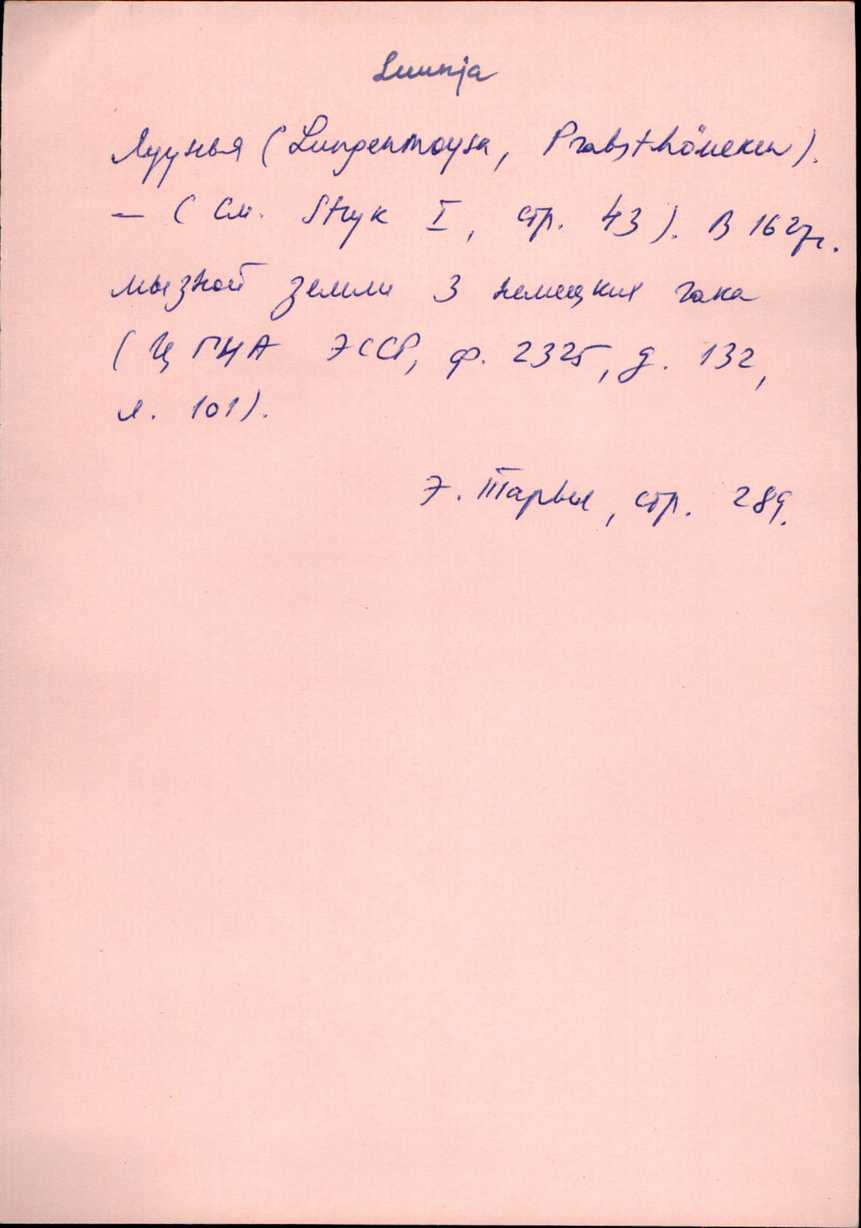 Luunja
Луунья (Lungenmoysa, Probsthömeken).
— (См. Stryk I, стр. 43). В 162 г.
мызной земли 3 немецких гака
(ЦГИА ЭССР, ф. 2325, д. 132,
л. 101).
Э. Тарвел, стр. 289.